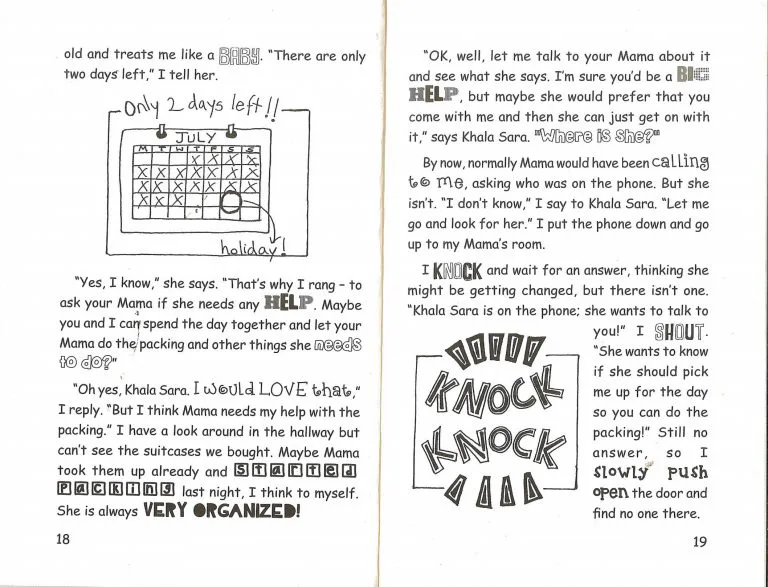 old and treats me like a BABY. “There are only
two days left,” I tell her.
Only 2 days left!!
JULY
M T W T F S S
X X X X
X X X X X X X
X X X X X X X
X X X
holiday!
“Yes, I know,” she says. “That’s why I rang – to
ask your Mama if she needs any HELP. Maybe
you and I can spend the day together and let your
Mama do the packing and other things she needs
to do?”
“Oh yes, Khala Sara. I would LOVE that,”
I reply. “But I think Mama needs my help with the
packing.” I have a look around in the hallway but
can’t see the suitcases we bought. Maybe Mama
took them up already and started
packing last night, I think to myself.
She is always VERY ORGANIZED!
18
“OK, well, let me talk to your Mama about it
and see what she says. I’m sure you’d be a BIG
HELP, but maybe she would prefer that you
come with me and then she can just get on with
it,” says Khala Sara. “Where is she?”
By now, normally Mama would have been calling
to me, asking who was on the phone. But she
isn’t. “I don’t know,” I say to Khala Sara. “Let me
go and look for her.” I put the phone down and go
up to my Mama’s room.
I KNOCK and wait for an answer, thinking she
might be getting changed, but there isn’t one.
“Khala Sara is on the phone; she wants to talk to
you!” I SHOUT.
“She wants to know
if she should pick
me up for the day
so you can do the
packing!” Still no
answer, so I
slowly push
open the door and
find no one there.
KNOCK
KNOCK
19